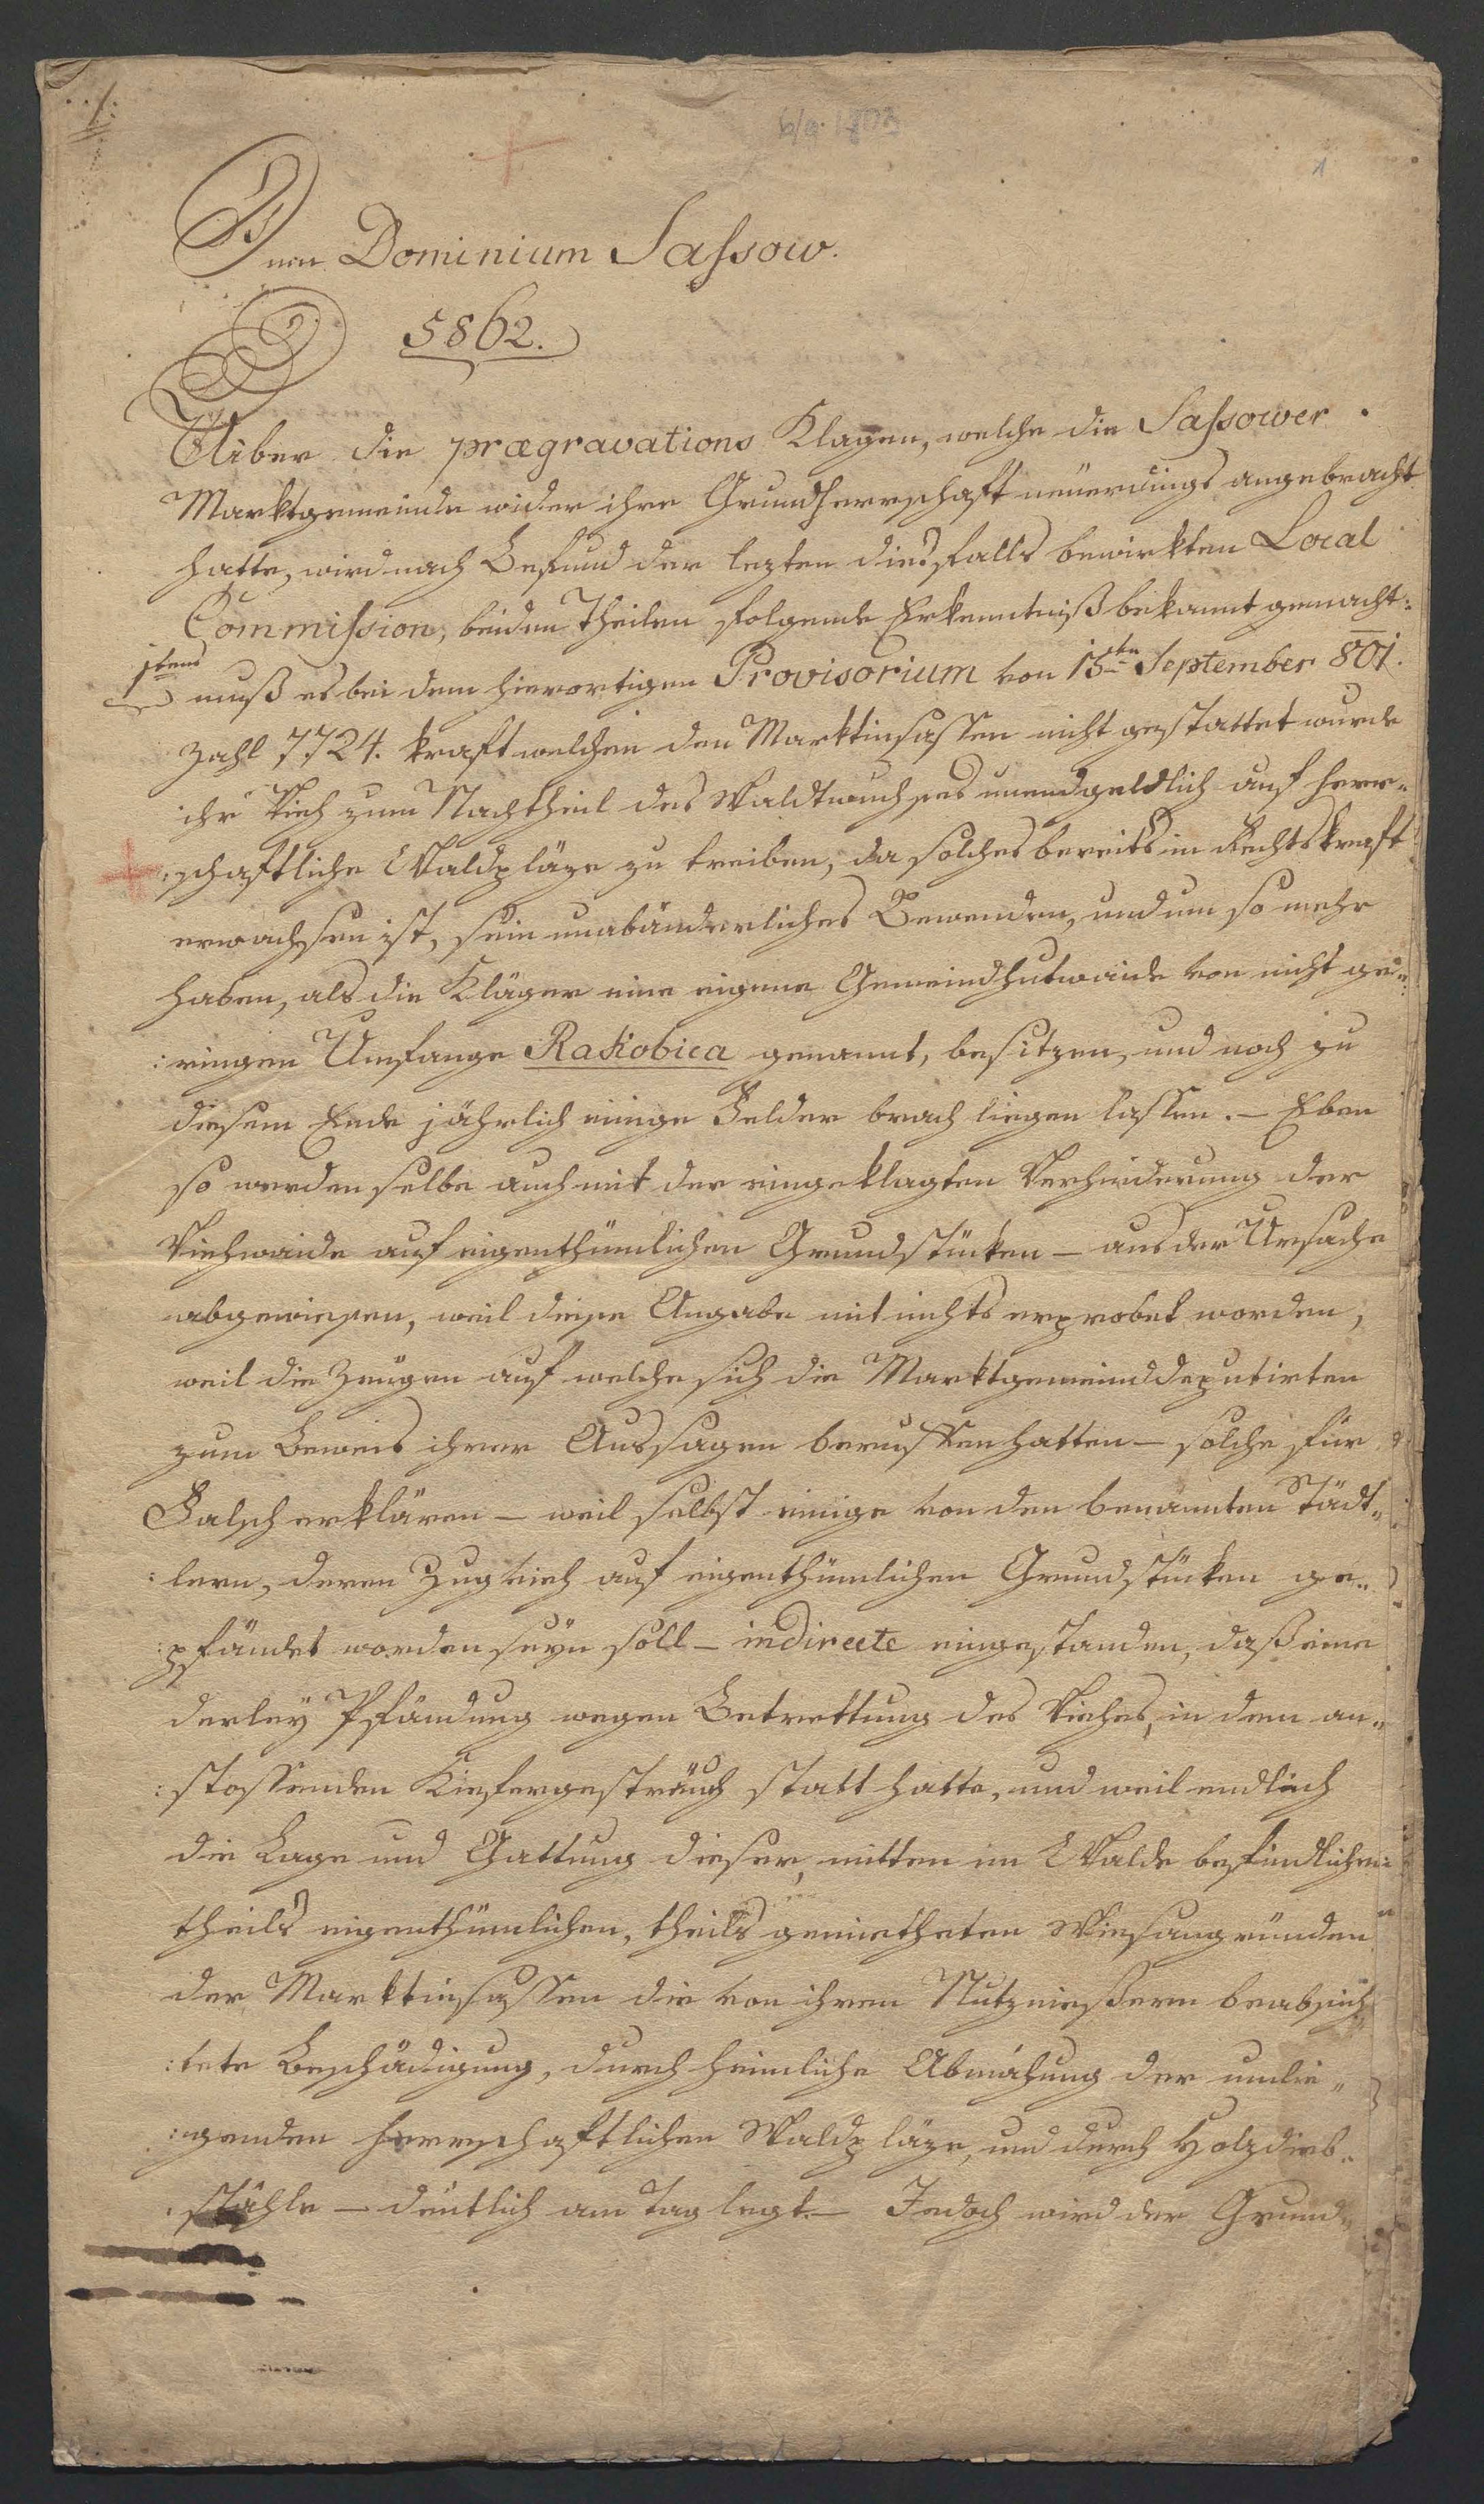 1
Dem Dominium Sassow.
5862.
Uiber die prægravations Klagen, welche die Sassower
Marktgemeinde wider ihre Grundherrschaft neüerdings angebracht
hatte, wird nach Befund der lezten diesfalls bewirkten Local
Commission, beiden Theilen folgende Erkenntniß bekannt gemacht:
1tens muß es bei dem hierortigen Provisorium von 15ten September 801.
Zahl 7724. kraft welchem den Marktinsassen nicht gestattet wurde
ihr Vieh zum Nachtheil des Waldwuchses unendgeldlich auf herr„
:schaftliche Waldpläze zu treiben, da solches bereits in Rechtskraft
erwachsen ist, sein unabänderliches Bewenden, und um so mehr
haben, als die Kläger eine eigene Gemeindhutweide von nicht ge„
:ringen Umfange Rakobica genannt, besitzen, und noch zu
diesem Ende jährlich einige Felder brach liegen lassen. – Eben
so werden selbe auch mit der eingeklagten Verhinderung der
Viehweide auf eigenthümlichen Grundstücken – aus der Ursache
abgewiesen, weil diese Angabe mit nichts erprobet worden,
weil die Zeugen auf welche sich die Marktgemeinddeputirten
zum Beweis ihrer Aussagen beruffen hatten – solche für
Falsch erklären – weil selbst einige von den benannten Städt„
:lern, deren Zugvieh auf eigenthümlichen Grundstücken ge„
:pfändet worden seyn soll – indirecte eingestanden, daß eine
derley Pfändung wegen Betrettung des Viehes, in dem an„
:stossenden Kiefergesträuch statt hatte, und weil endlich
die Lage und Gattung dieser, mitten im Walde befindlichen
theils eigenthümlichen, theils gemietheten Wiesengründen
der Marktinsassen die von ihren Nutznießern beabsich„
:tete Beschädigung, durch heimliche Abmähung der umlie„
:genden herrschaftlichen Waldpläze, und durch Holzdieb„
:stähle – deutlich am Tag legt. – Jedoch wird der Grund„